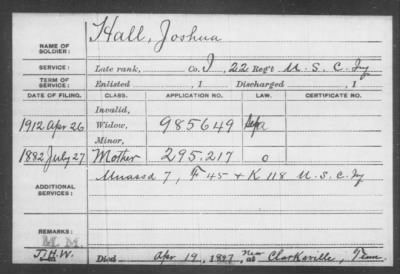 Hall, Joshua
NAME OF SOLDIER:
SERVICE: Late rank, Co. I, 22 Reg't U. S. C. Inf
TERM OF SERVICE: Enlisted , 1 Discharged , 1
DATE OF FILING. CLASS. APPLICATION NO. LAW. CERTIFICATE NO.
Invalid,
1912 Apr 26 Widow, 985649
Minor,
1882 July 27 Mother 295.217 o
ADDITIONAL SERVICES: 7, F 45 + K 118 U. S. C. Inf
REMARKS:
M. M.
J.H.W. Died Apr 19, near at Clarksville, Tenn.